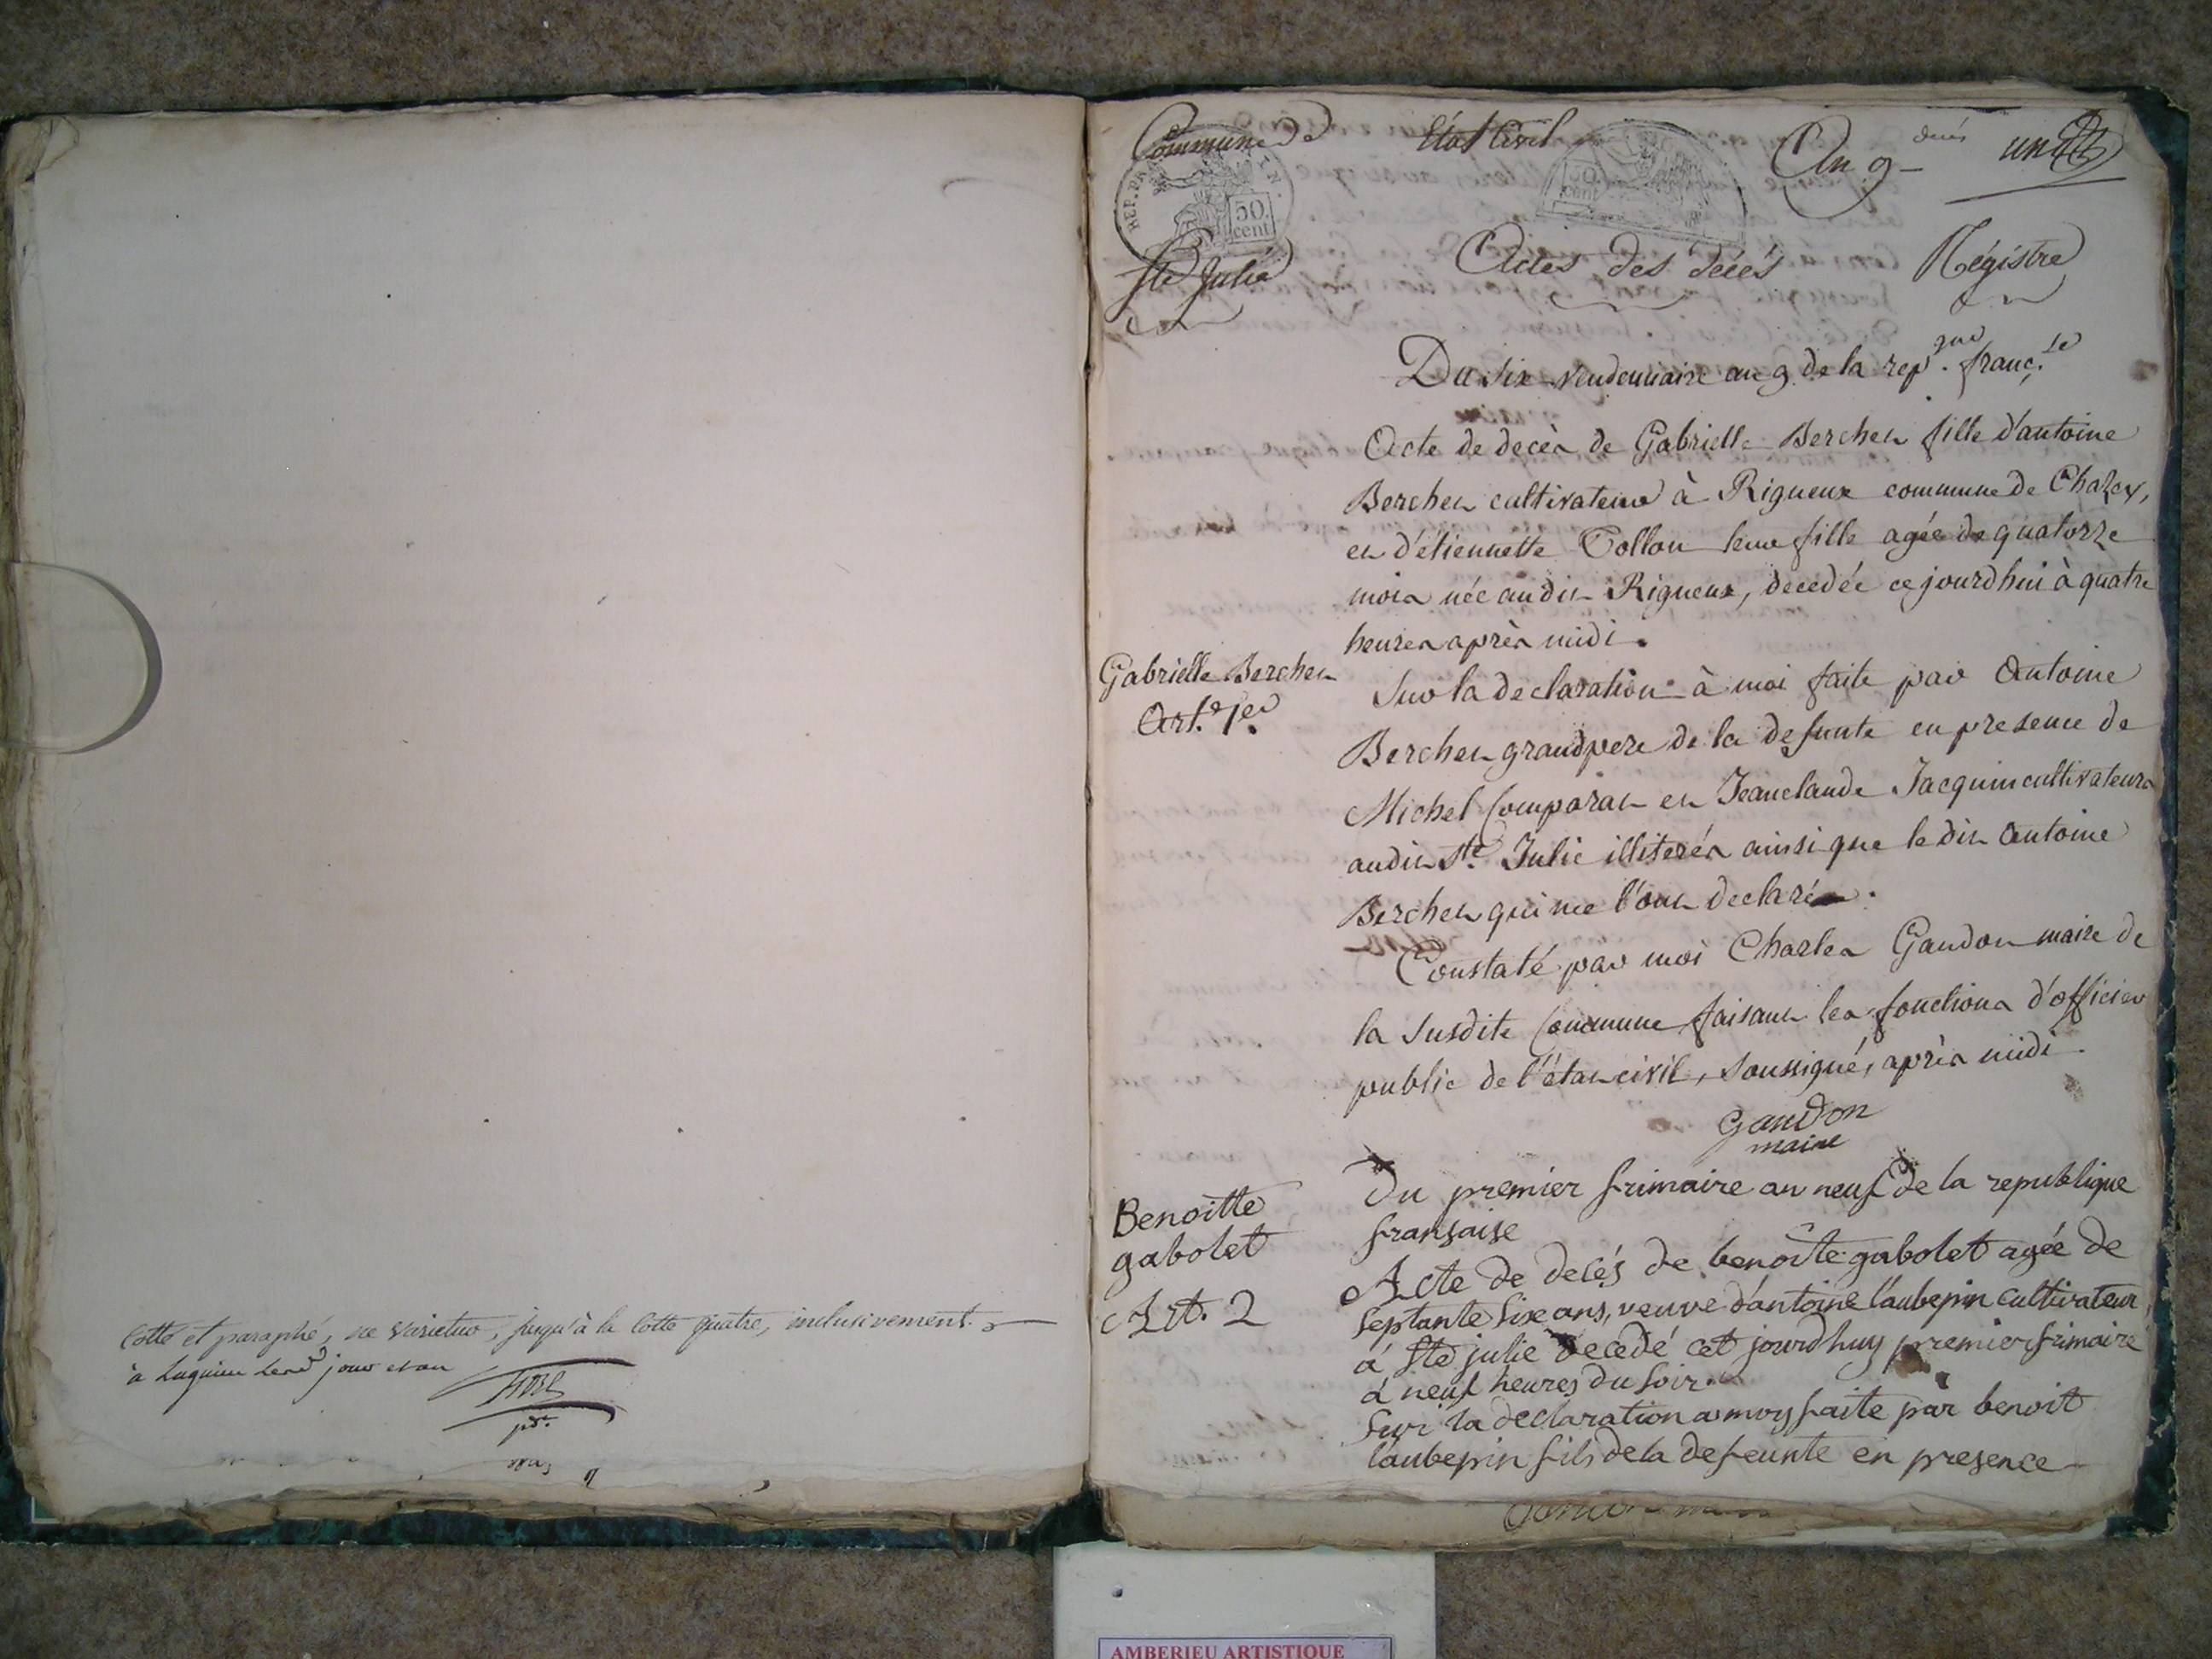 Cotté et paraphé, ne varietur, jusqu'à la Cotte quatre, inclusivement.
à Lagnieu jour et an
Commune de
Etat Civil
An 9
un
REP. FRA
50. cent
Ste Julie
Actes des décés
Régistre
Du six vendemiaire an 9 de la rep.que franç.se
Acte de decès de Gabrielle Berchet fille d'antoine
Berchet cultivateur à Rigneux commune de Chazey,
et d'étiennette Collon leur fille agée de quatorze
mois née audit Rigneux, decedée cejourdhui à quatre
heures après midi.
Gabrielle Berchet
Art.e 1er
Sur la declaration à moi faite par Antoine
Berchet grandpere de la defunte en presence de
Michel Comparat et Jeanclaude Jacquin cultivateurs
audit Ste Julie illiterés ainsi que ledit Antoine
Berchet qui me l'ont declaré.
Constaté par moi Charles Gandon maire de
la susdite Commune faisant les fonctions d'officier
public de l'état civil, soussigné, après midi.
Gandon
maire
Du premier frimaire an neuf de la republique
fransaise
Benoitte
gabolet
Art. 2
Acte de decés de benoîte gabolet agée de
septante six ans, veuve d'antoine laubepin cultivateur,
a Ste julie decedé cet jourdhuy premier frimaire
a neuf heures du soir.
sur la declaration a moy faite par benoit
laubepin fils de la defeunte en presence
AMBERIEU ARTISTIQUE